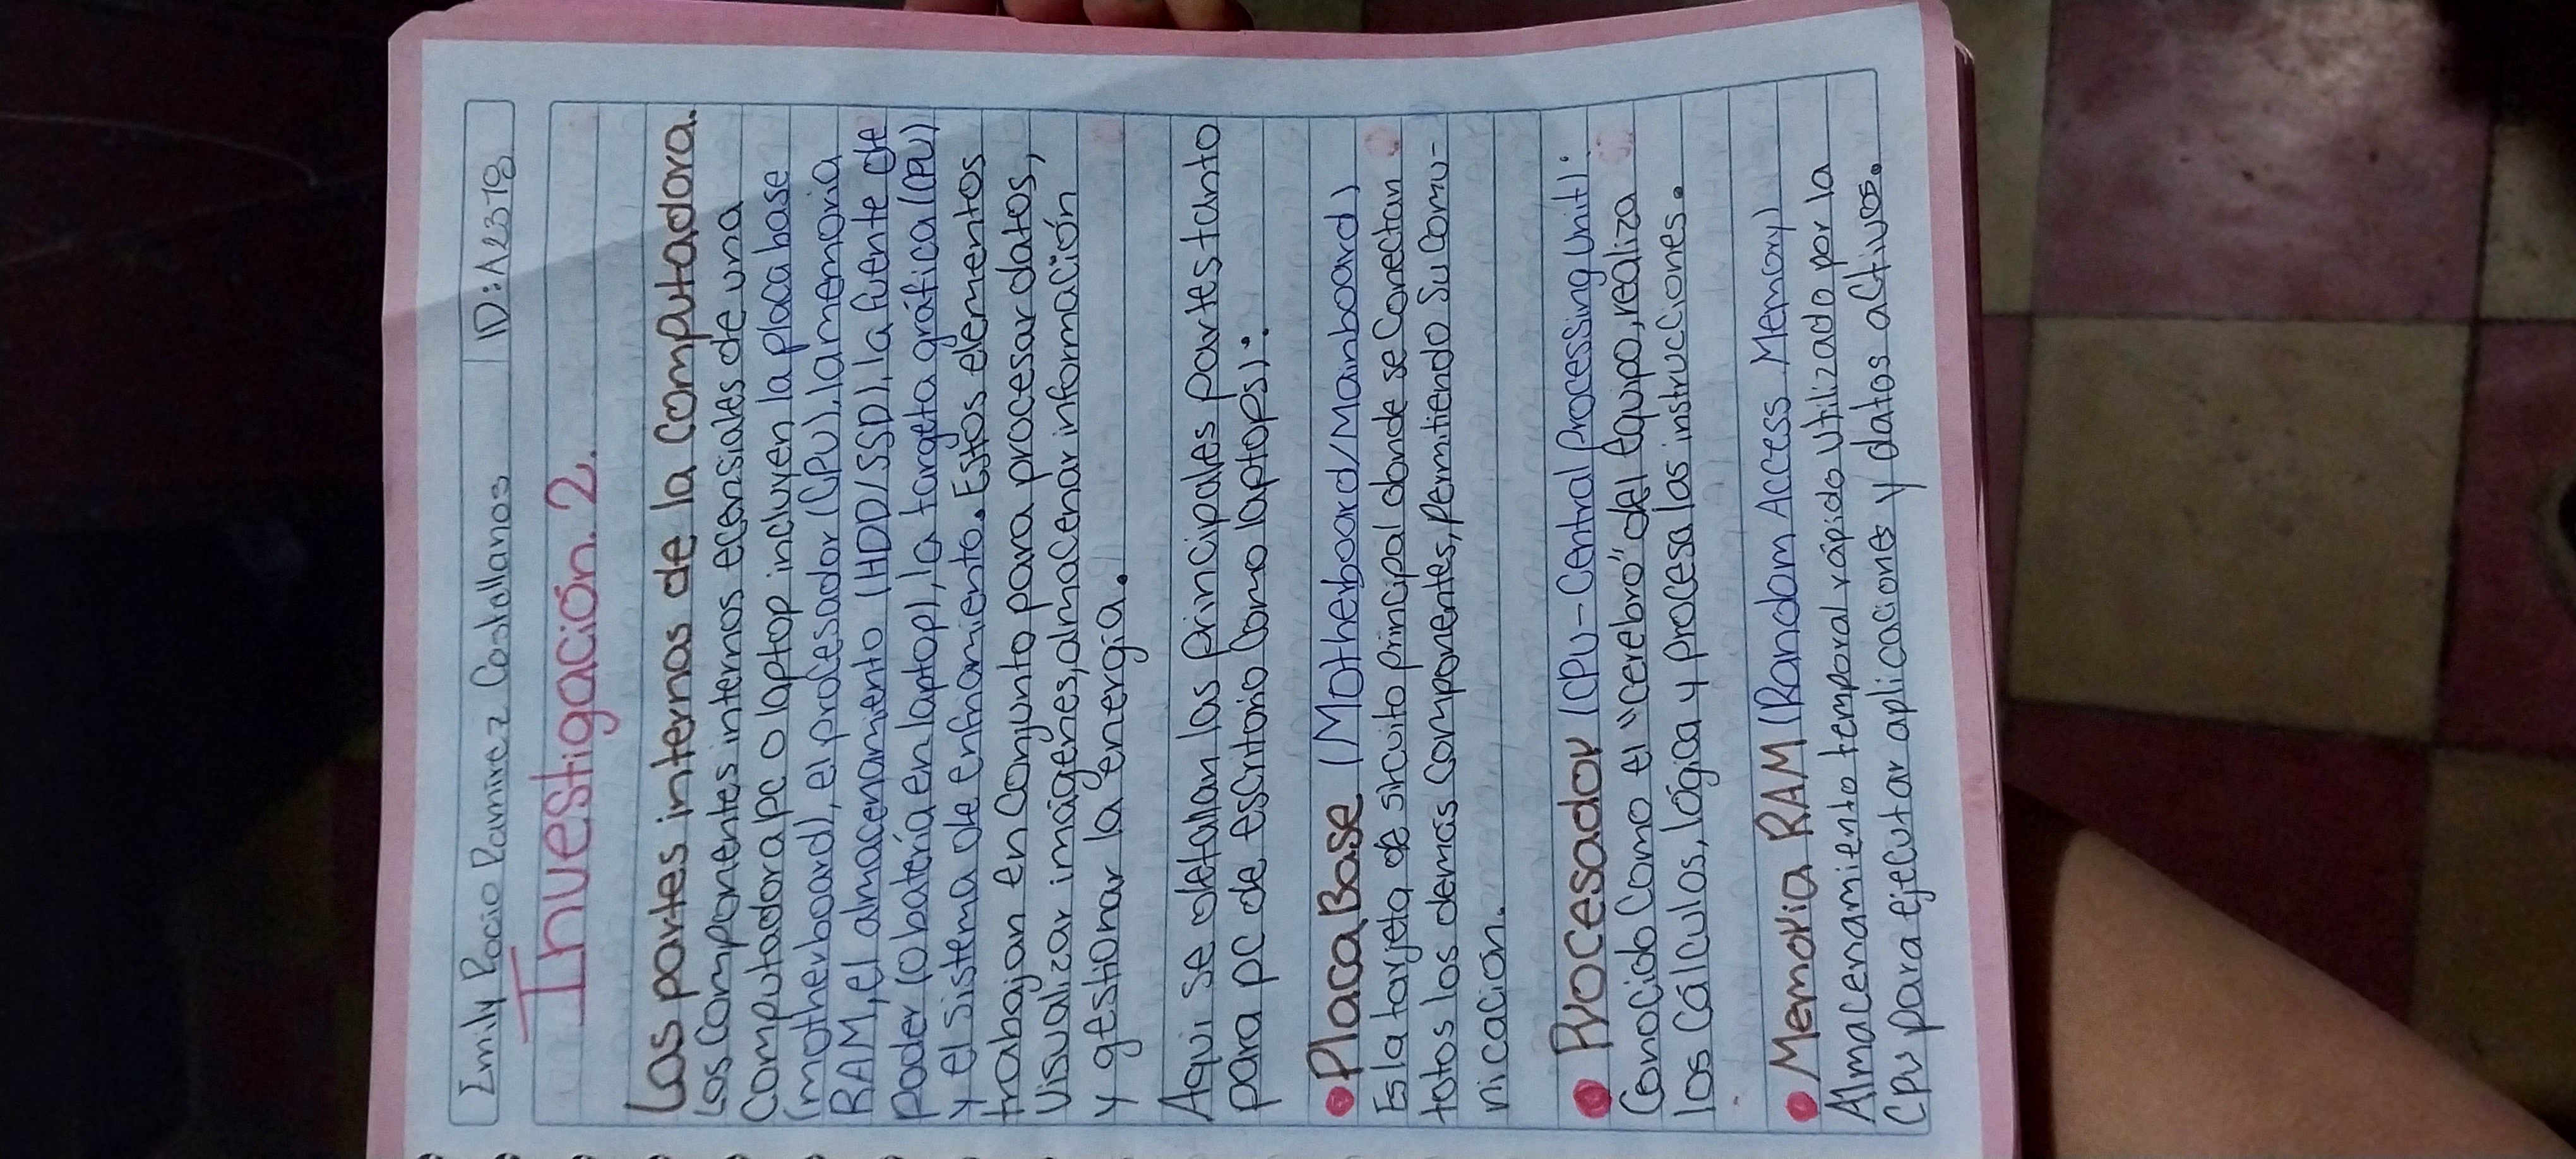 Emily Rocio Ramirez Castellanos ID: 12378
Investigación. 2.
Las partes internas de la computadora.
Los componentes internos ecensiales de una
computadora pc o laptop incluyen la placa base
(motherboard), el procesador (CPU), la memoria
RAM, el almacenamiento (HDD/SSD), la fuente de
poder (o batería en laptop), la targeta gráfica (CPU)
y el sistema de enfriamiento. Estos elementos
trabajan en conjunto para procesar datos,
visualizar imágenes, almacenar información
y gestionar la energía.
Aqui se detallan las principales partes tanto
para pc de escritorio como laptops):
• Placa Base (Motherboard/Mainboard)
Es la tarjeta de sircuito principal donde se conectan
totos los demas componentes, permitiendo su comu-
nicacion.
• Procesador (CPU-Central Processing Unit):
Conocido como el "cerebro" del equipo, realiza
los cálculos, lógica y procesa las instrucciones.
• Memoria RAM (Random Access Memory)
Almacenamiento temporal rápido utilizado por la
CPU para ejecutar aplicaciones y datos activos.